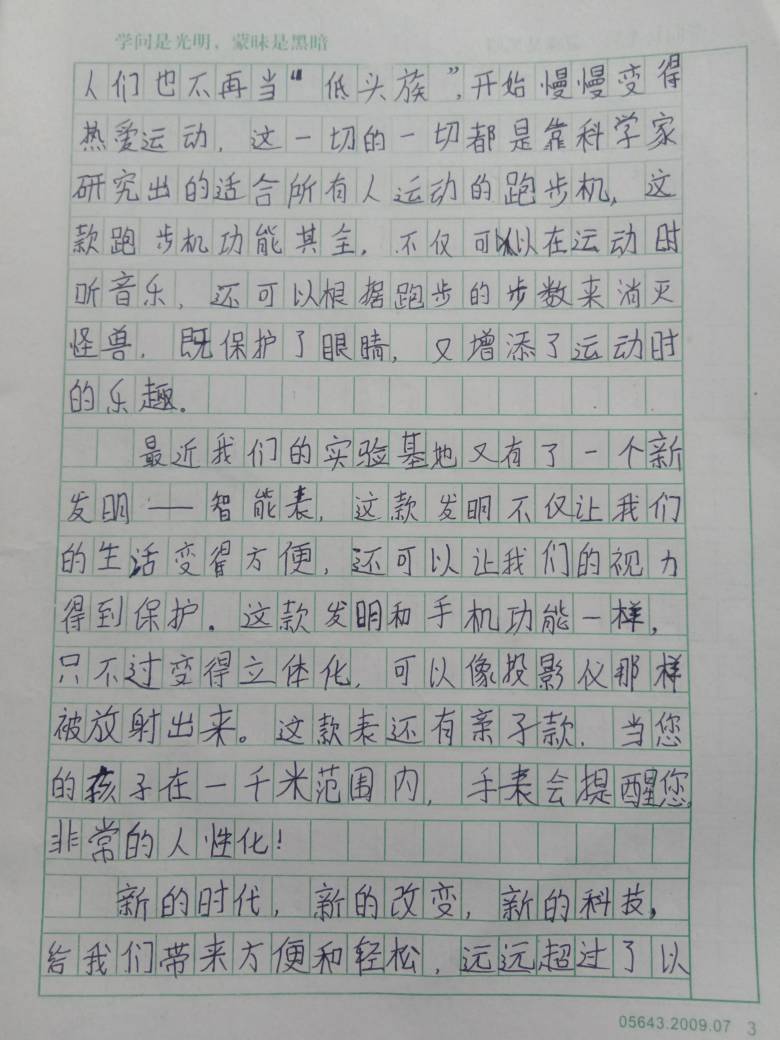 学问是光明，蒙昧是黑暗
人们也不再当“低头族”，开始慢慢变得
热爱运动，这一切的一切都是靠科学家
研究出的适合所有人运动的跑步机，这
款跑步机功能其全，不仅可以在运动时
听音乐，还可以根据跑步的步数来消灭
怪兽，既保护了眼睛，又增添了运动时
的乐趣。
最近我们的实验基地又有了一个新
发明——智能表，这款发明不仅让我们
的生活变得方便，还可以让我们的视力
得到保护。这款发明和手机功能一样，
只不过变得立体化，可以像投影仪那样
被放射出来。这款表还有亲子款，当您
的孩子在一千米范围内，手表会提醒您，
非常的人性化！
新的时代，新的改变，新的科技，
给我们带来方便和轻松，远远超过了以
05643.2009.07 3